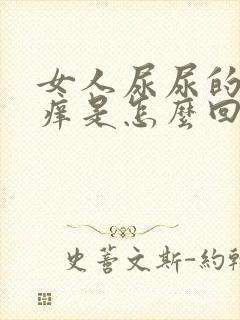 女人尿尿的
痒是怎麽回
史蒈文斯-約翰